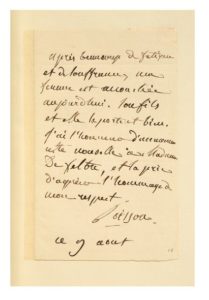 après beaucoup de fatigue
et de souffrance, ma
femme est accouchée
aujourd'hui. Son fils
et elle se portent bien.
j'ai l'honneur d'annoncer
cette nouvelle à Madame
De feltre, et la prie
d'agréer l'hommage de
mon respect
Poisson
ce 9 aout